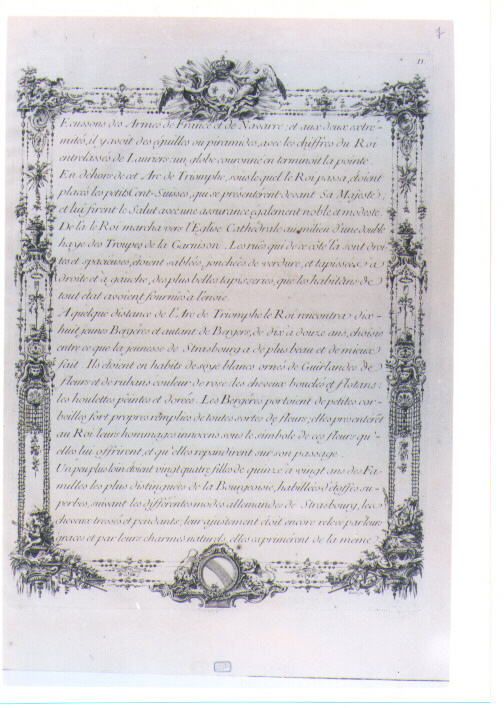 11
Ecussons des Armes de France et de Navarre, et aux deux extre-
mités, il y avoit des éguilles ou piramides, avec les chiffres du Roi
entrelassés de Lauriers: un globe couronné en terminoit la pointe.
En dehors de cet Arc de Triomphe, sous lequel le Roi passa, étoient
placés les petits Cent-Suisses, qui se présenterent devant Sa Majesté,
et lui firent le Salut avec une assurance également noble et modeste.
De là le Roi marcha vers l'Eglise Cathédrale au milieu d'une double
haye des Troupes de la Garnison. Les ruës qui de ce côté là sont droi-
tes et spacieuses, étoient sablées, jonchées de verdure, et tapissées à
droite et à gauche, des plus belles tapisseries, que les habitans de
tout état avoient fournies à l'envie.
A quelque distance de l'Arc de Triomphe le Roi rencontra dix-
huit jeunes Bergéres et autant de Bergers, de dix à douze ans, choisis
entre ce que la jeunesse de Strasbourg a de plus beau et de mieux
fait. Ils étoient en habits de soye blancs ornés de Guirlandes de
fleurs et de rubans couleur de rose: les cheveux bouclés et flotans:
les houlettes peintes et dorées. Les Bergéres portoient de petites cor-
beilles fort propres remplies de toutes sortes de fleurs; elles presenterēt
au Roi leurs hommages innocens sous le simbole de ces fleurs qu'-
elles lui offrirent, et qu'elles repandirent sur son passage.
Un peu plus loin étoient vingt quatre filles de quinze à vingt ans des Fa-
milles les plus distinguées de la Bourgeoisie, habillées d'étoffes su-
perbes, suivant les différentes modes allemandes de Strasbourg, les
cheveux tressés et pendants; leur ajustement étoit encore relevé par leurs
graces et par leurs charmes naturels, elles s'aprimérent de la même